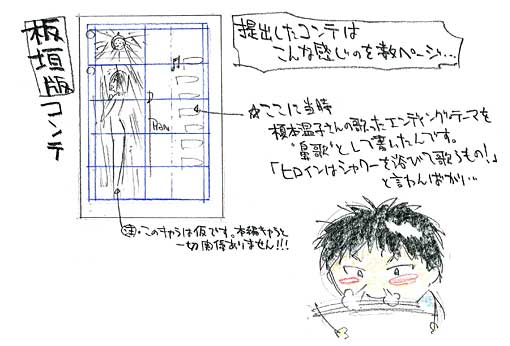 板垣版コンテ
提出したコンテは
こんな感じのを数ページ…
☆ここに当時
榎本温子さんの歌ったエンディングテーマを
"鼻歌"として書いたんです。
「ヒロインはシャワーを浴びて歌うもの!」
と言わんばかり…
PAN
注・このキャラは仮です。本編キャラと
一切関係ありません!!!